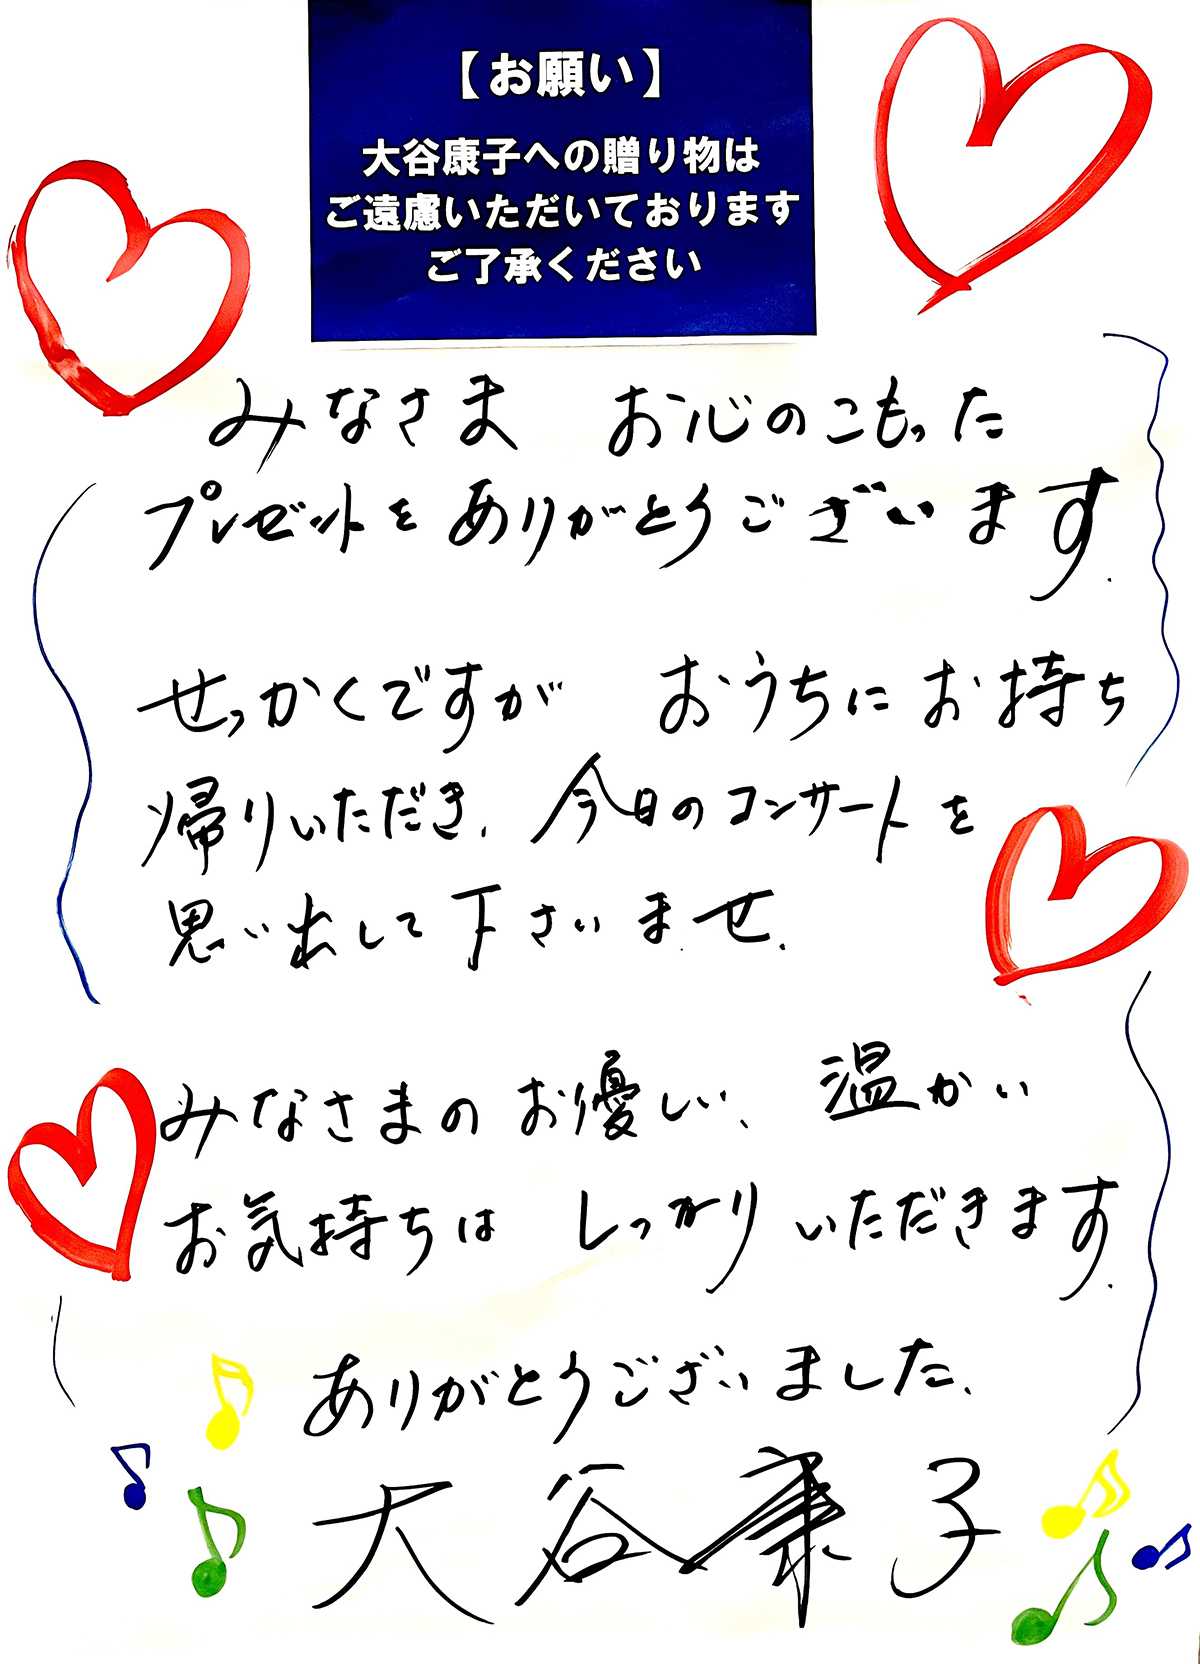 【お願い】
大谷康子への贈り物は
ご遠慮いただいております
ご了承ください
みなさま お心のこもった
プレゼントをありがとうございます.
せっかくですが おうちにお持ち
帰りいただき、今日のコンサートを
思い出して下さいませ.
みなさまのお優しい、温かい
お気持ちは しっかりいただきます.
ありがとうございました、
大谷康子